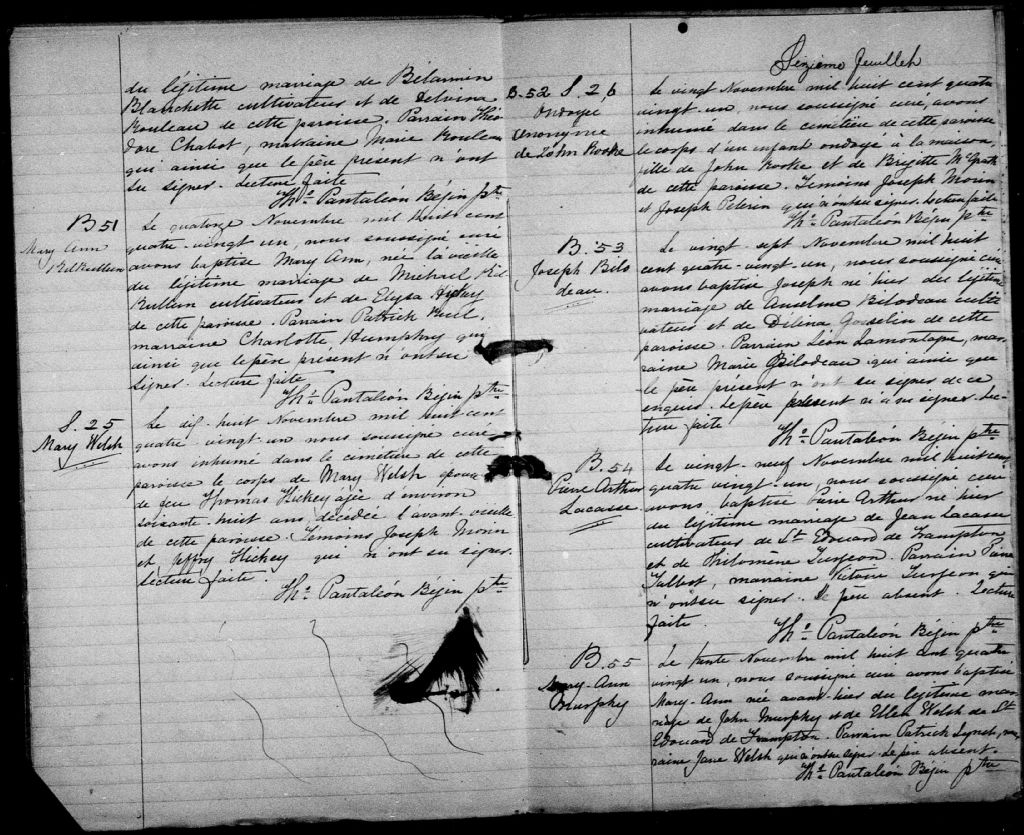 du légitime mariage de Bélarmin
Blanchette cultivateur et de Delvina
Rouleau de cette paroisse. Parrain Théo
dore Chabot, marraine Marie Rouleau
qui ainsi que le père present n'ont
su signer. Lecture faite
Ths Pantaléon Bégin ptre
B 51
Mary Ann
Kilkullen
Le quatorze Novembre mil huit cent
quatre-vingt un, nous soussigné curé
avons baptisé Mary Ann, née la vieille
du légitime mariage de Michael Kil
Kullen cultivateur et de Elysa Hickey
de cette paroisse. Parrain Patrick
marraine Charlotte Humphrey qui
ainsi que le père present n'ont su
signer. Lecture faite
Ths Pantaléon Bégin ptre
S. 25
Mary Welsh
Le dix huit Novembre mil huit-cent
quatre-vingt un nous soussigné curé
avons inhumé dans le cimetière de cette
paroisse le corps de Mary Welsh épouse
de feu Thomas Hickey agée d'environ
soixante-huit ans, décédée l'avant veille
de cette paroisse. Témoins Joseph Morin
et Jeffry Hickey qui n'ont su signer.
Lecture faite.
Ths Pantaléon Bégin ptre
Sezième feuillet
B.52 S. 26
Ondoyé
Anonyme
de John Rooke
Le vingt Novembre mil huit cent quatre
vingt-un, nous soussigné curé, avons
inhumé dans le cimetière de cette paroisse
le corps d'un enfant ondoyé à la maison,
fille de John Rooke et de Brigitte McGrath
de cette paroisse. Témoins Joseph Morin
et Joseph Pelerin qui n'ont su signer. Lecture faite
Ths Pantaléon Bégin ptre
B. 53
Joseph Bilo
deau.
Le vingt-sept Novembre mil huit
cent quatre-vingt-un, nous soussigné curé
avons baptisé Joseph né hier du légitime
mariage de Anselme Bilodeau culti
vateur et de Délina Gosselin de cette
paroisse. Parrain Léon Lamontagne, mar
raine Marie Bilodeau qui ainsi que
le père présent n'ont su signer de ce
enquis. Le père present n'a su signer. Lec
ture faite
Ths Pantaléon Bégin ptre
B. 54
Pierre Arthur
Lacasse
Le vingt-neuf Novembre mil huit cent
quatre vingt-un, nous soussigné curé
avons baptisé Pierre Arthur né hier
du légitime mariage de Jean Lacasse
cultivateur de St Edouard de Frampton
et de Philomène Turgeon. Parrain Pierre
Talbot, marraine Victoire Turgeon, qui
n'ont su signer. Le père absent. Lecture
faite.
Ths Pantaléon Bégin ptre
B. 55
Mary-Ann
Murphy
Le trente Novembre mil huit cent quatre
vingt un, nous soussigné curé avons baptisé
Mary-Ann née avant-hier du légitime ma
riage de John Murphy et de Ellen Welsh de St
Edouard de Frampton. Parrain Patrick Lynch, mar
raine Jane Welsh qui n'ont su signer. Le père absent.
Ths Pantaléon Bégin ptre